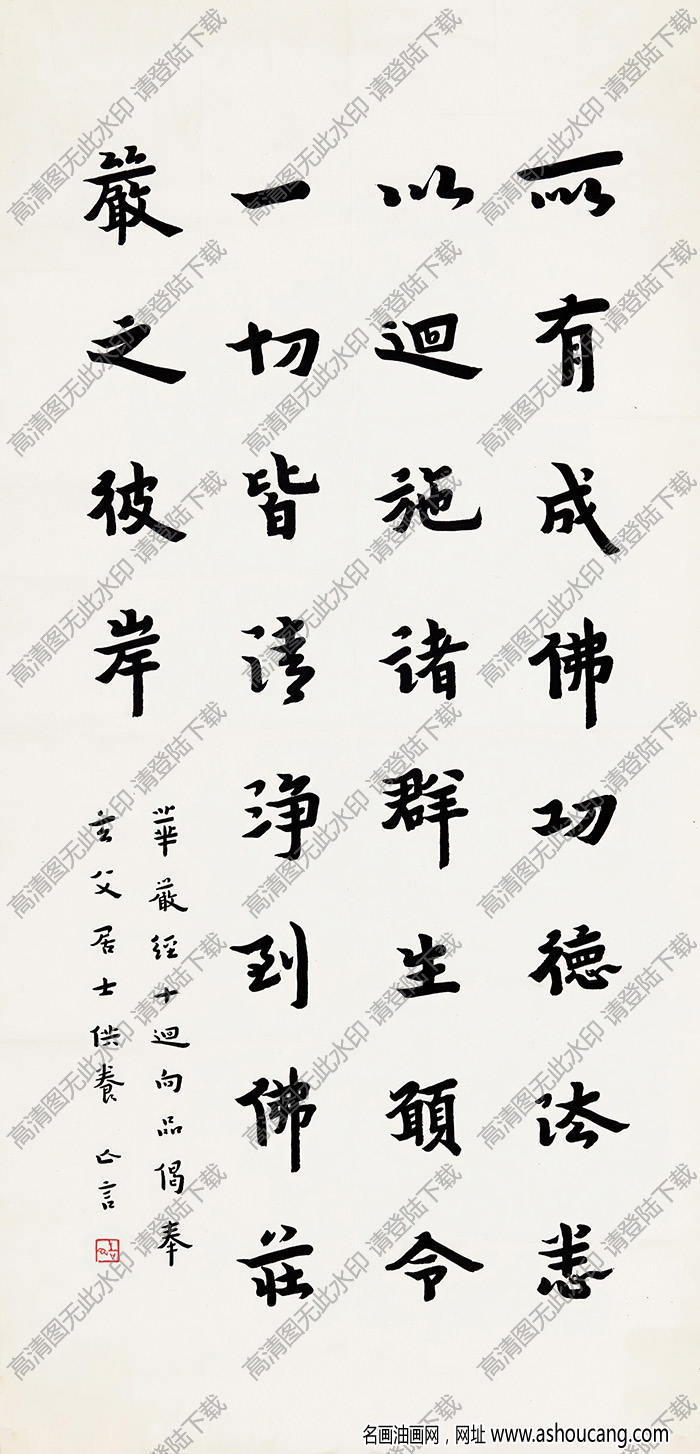 所有成佛功德法悉
以迴施諸群生願令
一切皆清淨到佛莊
嚴之彼岸
華嚴經十迴向品偈奉
玄父居士供養 亡言
高清图无此水印 请登陆下载
名画油画网，网址 www.ashoucang.com